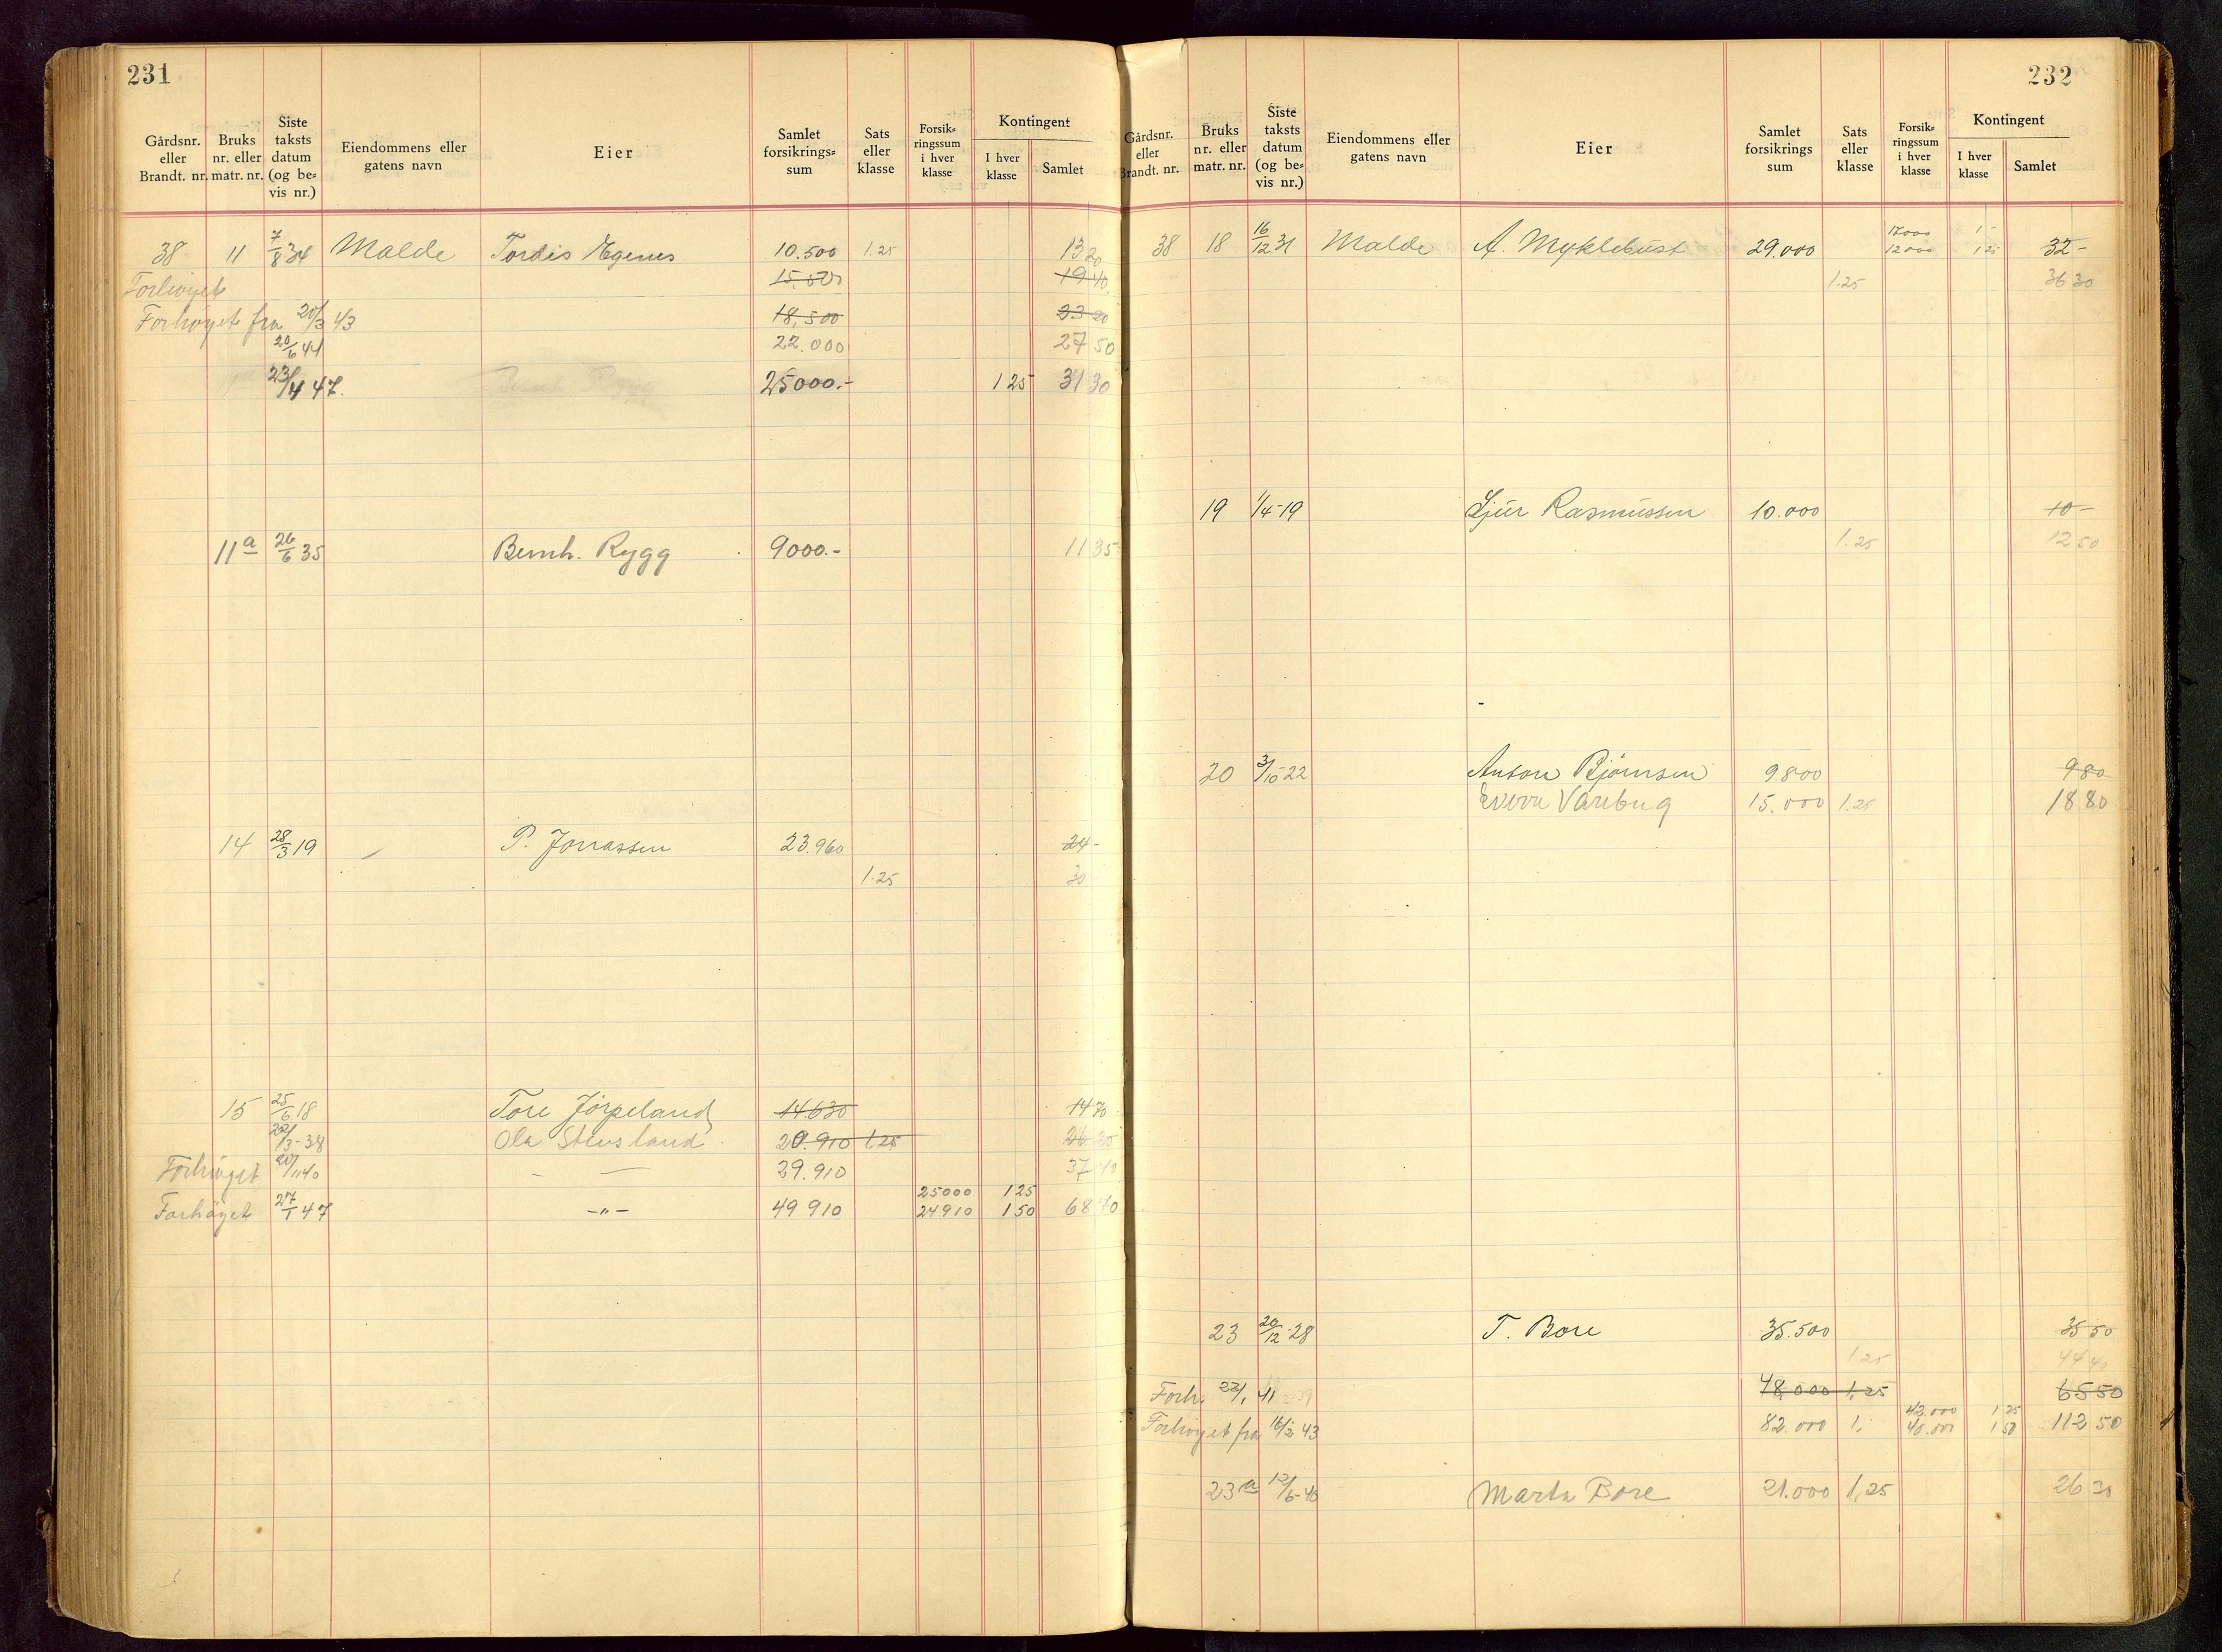 231
Gårdsnr. eller Brandt. nr.
Bruks nr. eller matr. nr.
Siste taksts datum (og be= vis nr.)
Eiendommens eller gatens navn
Eier
Samlet forsikrings= sum
Sats eller klasse
Forsik= ringssum i hver klasse
Kontingent
I hver klasse
Samlet
38 11 7/8 34 Malde Tordis Egenes 10.500 1.25 13 20
Forhøyet 15.500 19 40
Forhøyet fra 20/3 43 18,500 23 20
20/6 44 22.000 27 50
11a 23/4 47. 25000.- 1 25 31 30
11a 26/6 35 Bernh. Rygg 9000.- 11 35
14 28/3 19 P. Jonassen 23.960 24-
1.25 30
15 25/6 18 Tore Jörpeland 14.630 14 70
22/3-38 Ola Stensland 20.910 1.25
Forhøyet 20/11 40 — — 29.910 37 40
25000 1 25
Forhøyet 27/1 47 -"- 49 910 24910 1 50 68 70
232
Gårdsnr. eller Brandt. nr.
Bruks nr. eller matr. nr.
Siste taksts datum (og be= vis nr.)
Eiendommens eller gatens navn
Eier
Samlet forsikrings sum
Sats eller klasse
Forsik= ringssum i hver klasse
Kontingent
I hver klasse
Samlet
17000 1-
38 18 16/12 31 Malde A. Myklebust 29.000 12000 1 25 32-
1.25 36 30
19 1/4-19 Sjur Rasmussen 10.000 10-
1.25 12 50
20 3/10-22 Anton Bjørnsen 9.800 9 80
15.000 1.25 18 80
23 20/12-28 T. Bore 35.500 35 50
1.25 44 40
Forh. 22/1 41 48,000 1,25 65 50
42.000 1 25
Forhøyet fra 16/2 43 82.000 1. 40.000 1 50 112 50
23a 12/6-40 Marta Bore 21.000 1,25 26 30